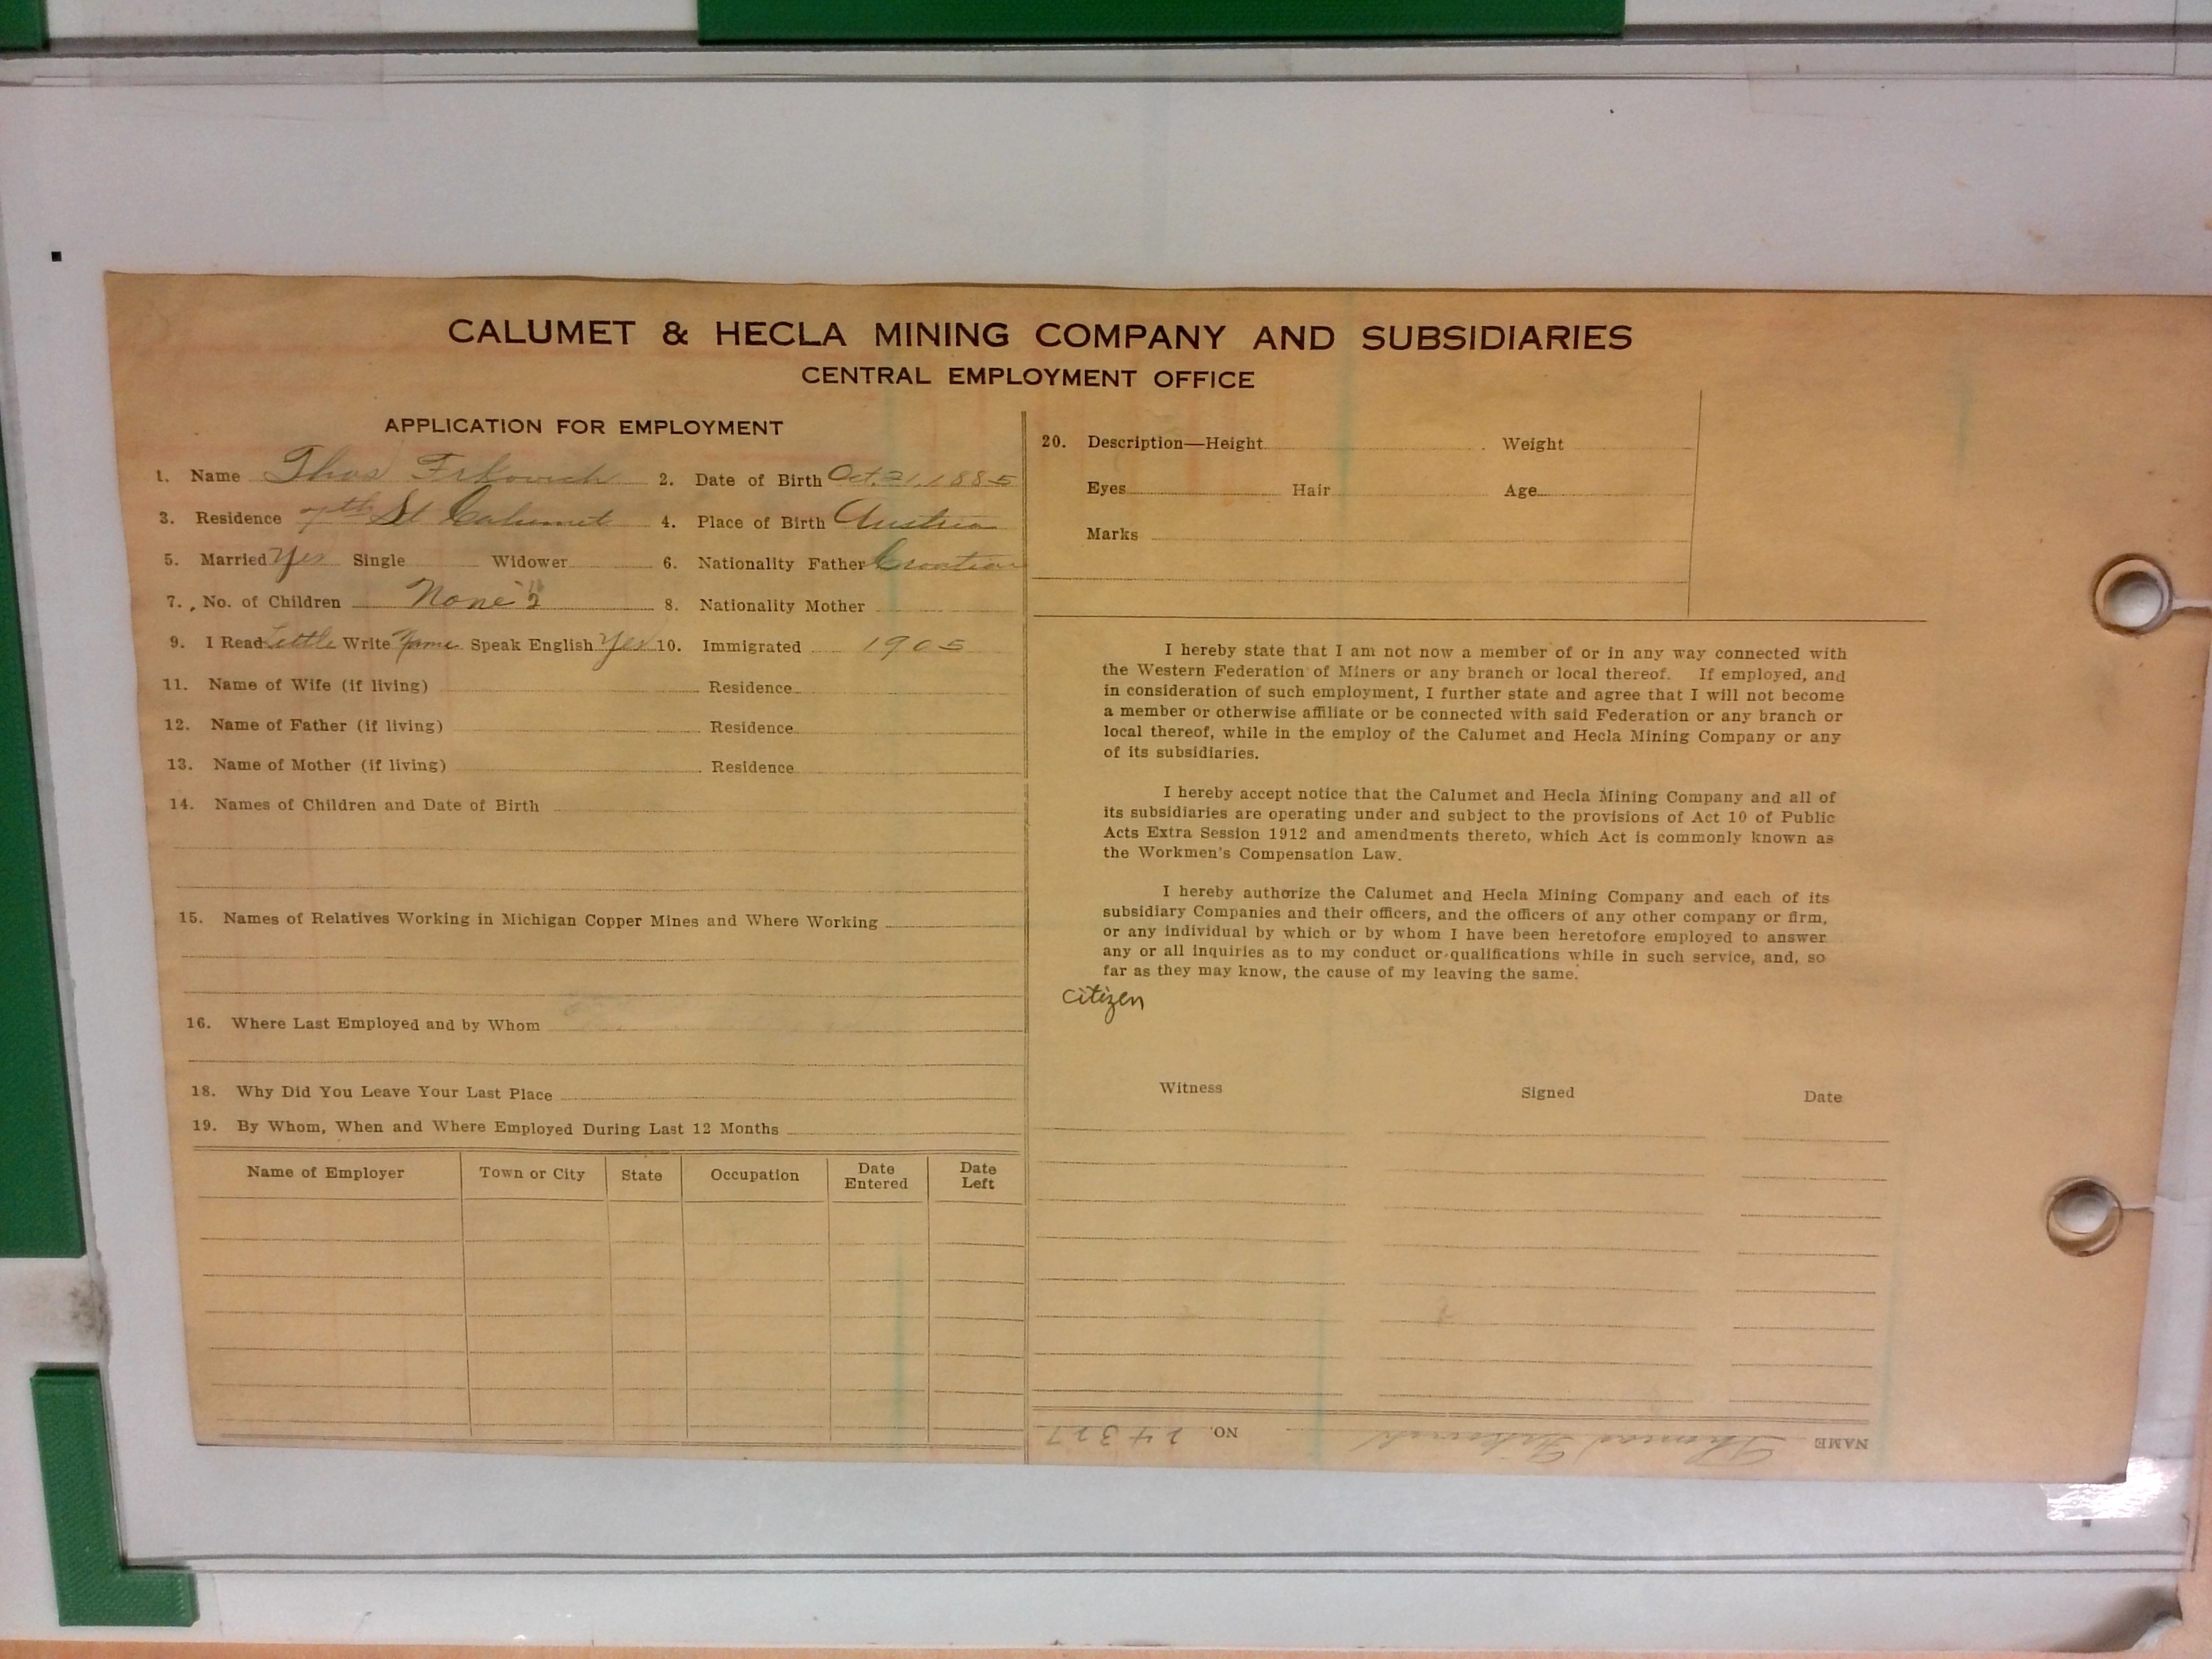 CALUMET & HECLA MINING COMPANY AND SUBSIDIARIES
CENTRAL EMPLOYMENT OFFICE
APPLICATION FOR EMPLOYMENT
1. Name Thos Frkovich 2. Date of Birth Oct. 21, 1885
3. Residence 7th St Calumet 4. Place of Birth Austria
5. Married Yes Single Widower 6. Nationality Father Croatian
7. No. of Children None 2 8. Nationality Mother
9. I Read Little Write Name Speak English Yes 10. Immigrated 1905
11. Name of Wife (if living) Residence
12. Name of Father (if living) Residence
13. Name of Mother (if living) Residence
14. Names of Children and Date of Birth
15. Names of Relatives Working in Michigan Copper Mines and Where Working
16. Where Last Employed and by Whom
18. Why Did You Leave Your Last Place
19. By Whom, When and Where Employed During Last 12 Months
Name of Employer Town or City State Occupation Date Entered Date Left
20. Description—Height Weight
Eyes Hair Age
Marks
I hereby state that I am not now a member of or in any way connected with
the Western Federation of Miners or any branch or local thereof. If employed, and
in consideration of such employment, I further state and agree that I will not become
a member or otherwise affiliate or be connected with said Federation or any branch or
local thereof, while in the employ of the Calumet and Hecla Mining Company or any
of its subsidiaries.
I hereby accept notice that the Calumet and Hecla Mining Company and all of
its subsidiaries are operating under and subject to the provisions of Act 10 of Public
Acts Extra Session 1912 and amendments thereto, which Act is commonly known as
the Workmen's Compensation Law.
I hereby authorize the Calumet and Hecla Mining Company and each of its
subsidiary Companies and their officers, and the officers of any other company or firm,
or any individual by which or by whom I have been heretofore employed to answer
any or all inquiries as to my conduct or qualifications while in such service, and, so
far as they may know, the cause of my leaving the same.
citizen
Witness Signed Date
NAME Thomas Frkovich NO. 24327